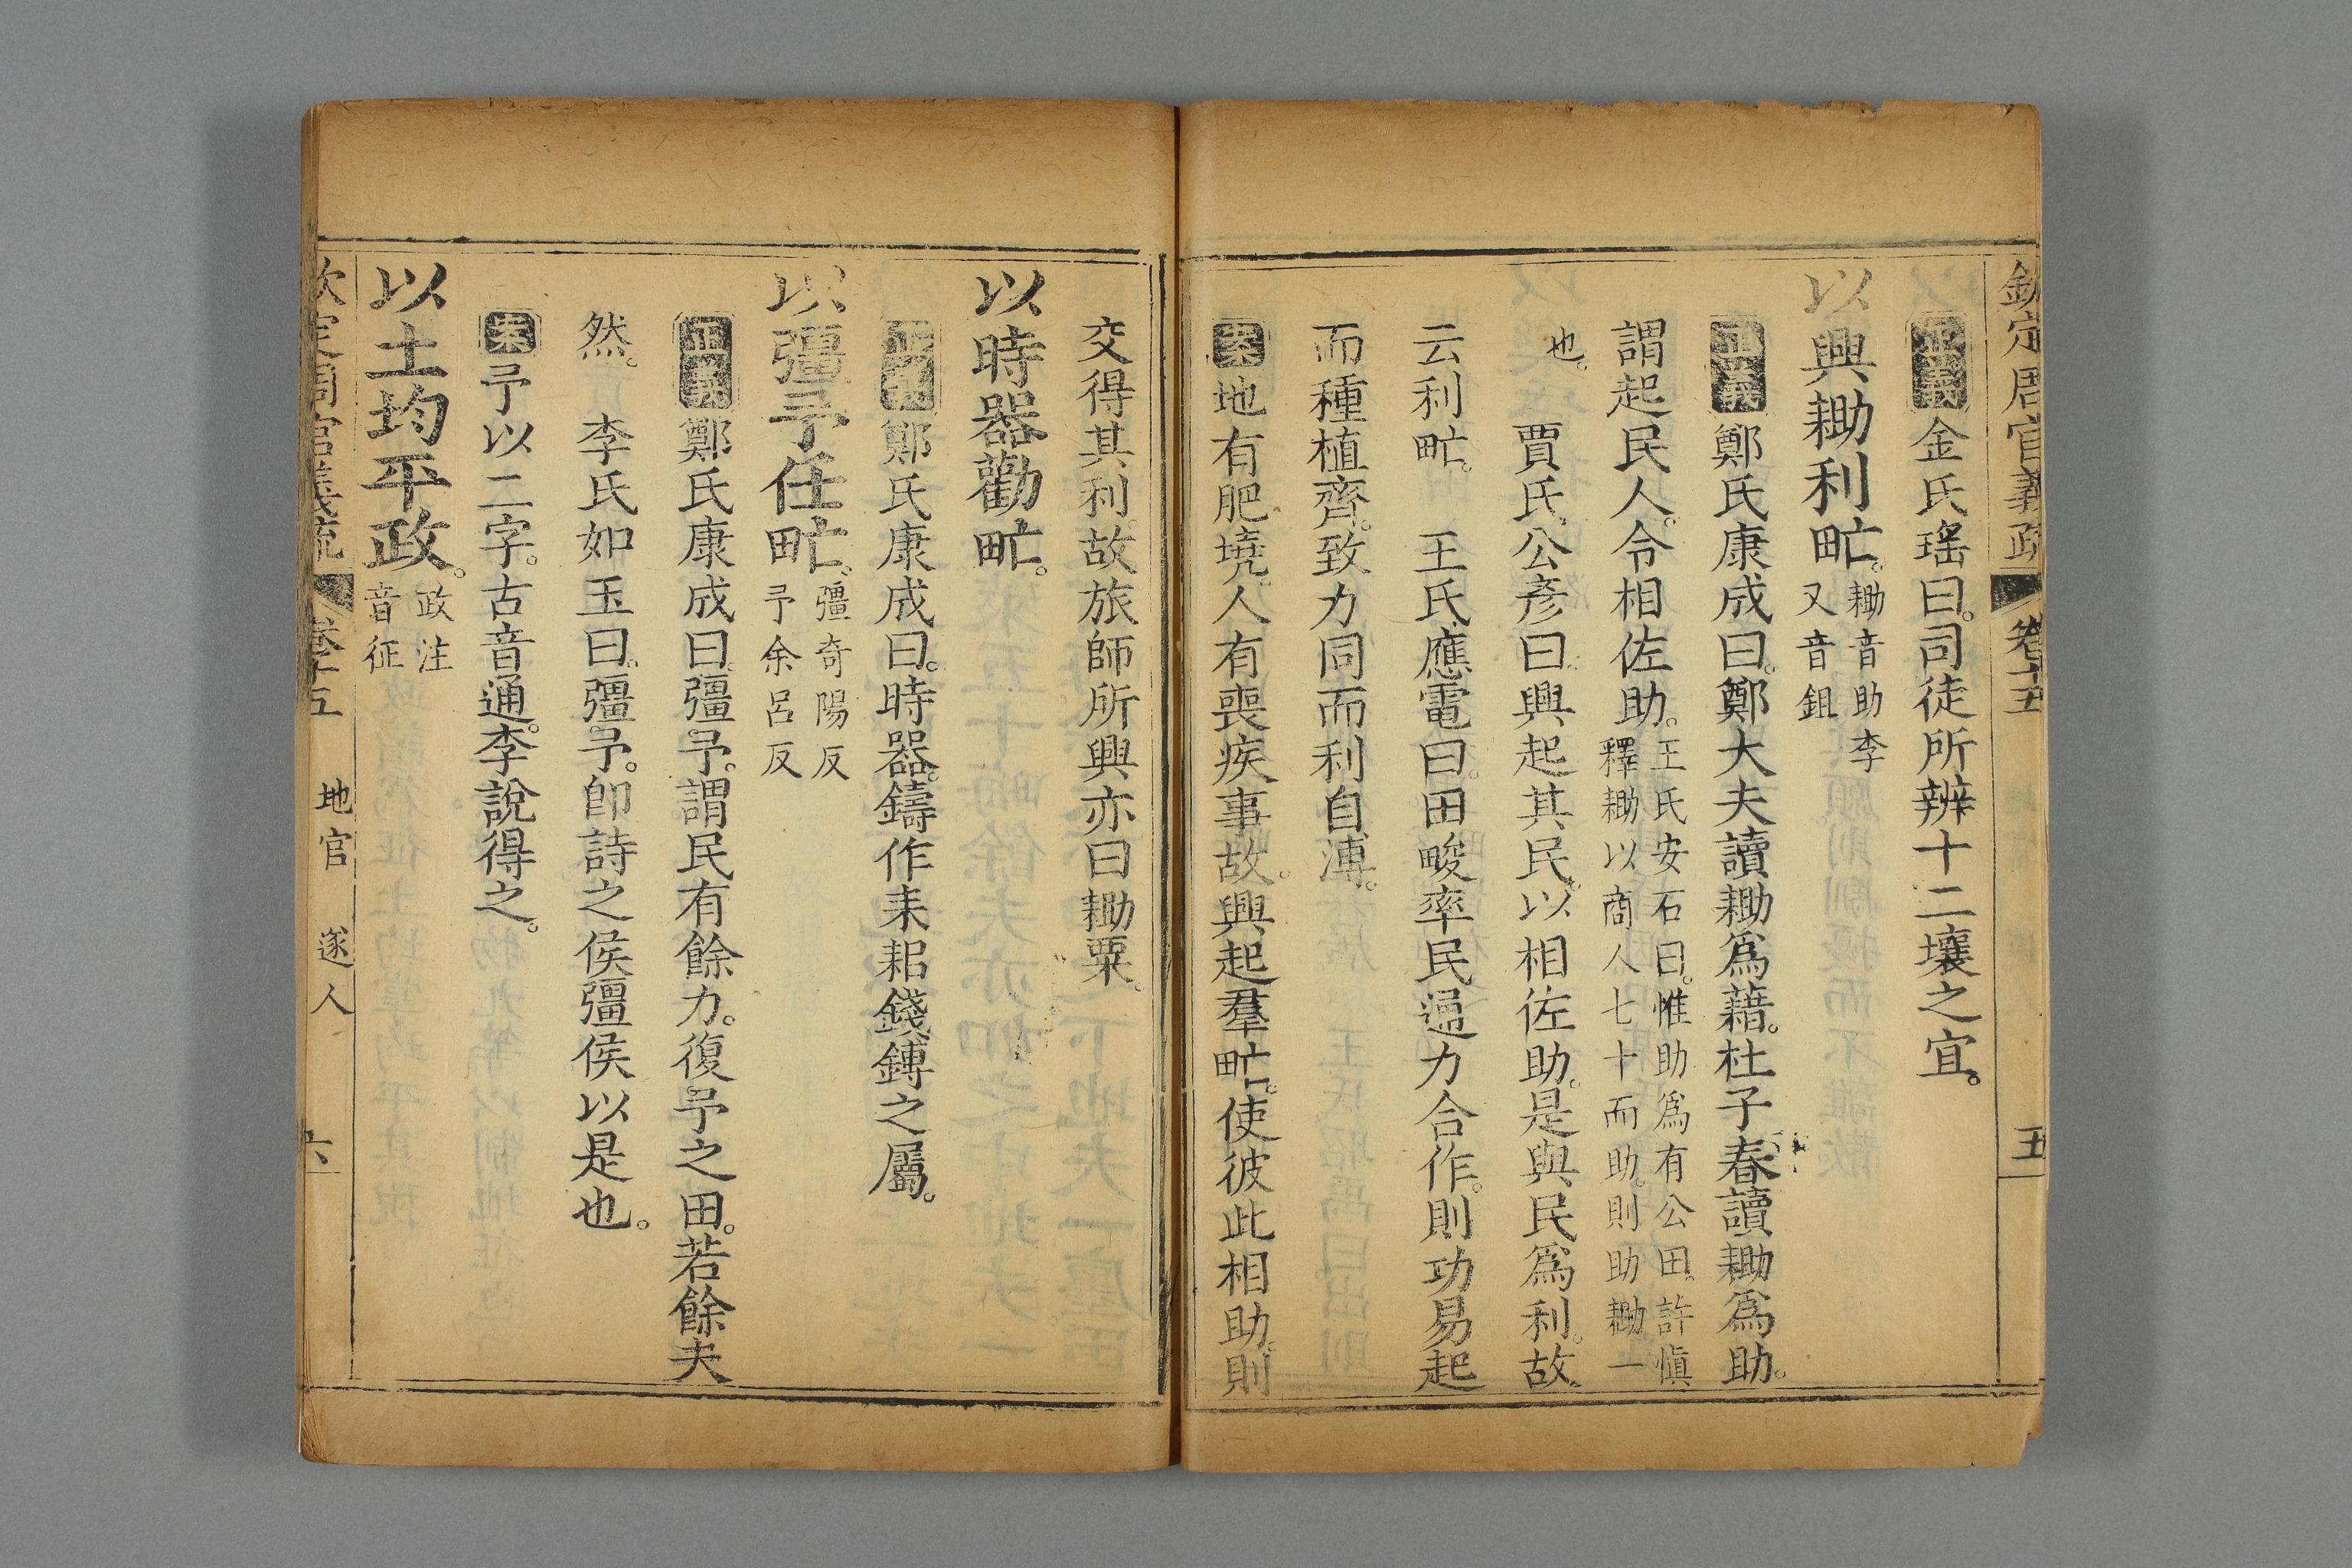 欽定周官義疏 卷十五 五
正義金氏瑤曰。司徒所辨十二壤之宜。
以興耡利甿。耡音助李又音鉏
正義鄭氏康成曰。鄭大夫讀耡爲藉。杜子春讀耡爲助。
謂起民人。令相佐助。王氏安石曰。惟助爲有公田。許愼釋耡以商人七十而助。則助耡一
也。 賈氏公彥曰。興起其民。以相佐助。是與民爲利。故
云利甿。 王氏應電曰。田畯率民。逼力合作。則功易起
而種植齊。致力同而利自溥。
案地有肥墝。人有喪疾事故。興起羣甿。使彼此相助。則
交得其利。故旅師所興亦曰耡粟。
以時器勸甿。
正義鄭氏康成曰。時器。鑄作耒耜錢鎛之屬。
以彊予任甿。彊奇陽反予余呂反
正義鄭氏康成曰。彊予。謂民有餘力。復予之田。若餘夫
然。 李氏如玉曰。彊予。卽詩之侯彊侯以是也。
案予以二字。古音通。李說得之。
以土均平政。政注音征
欽定周官義疏 卷十五 地官 遂人 六